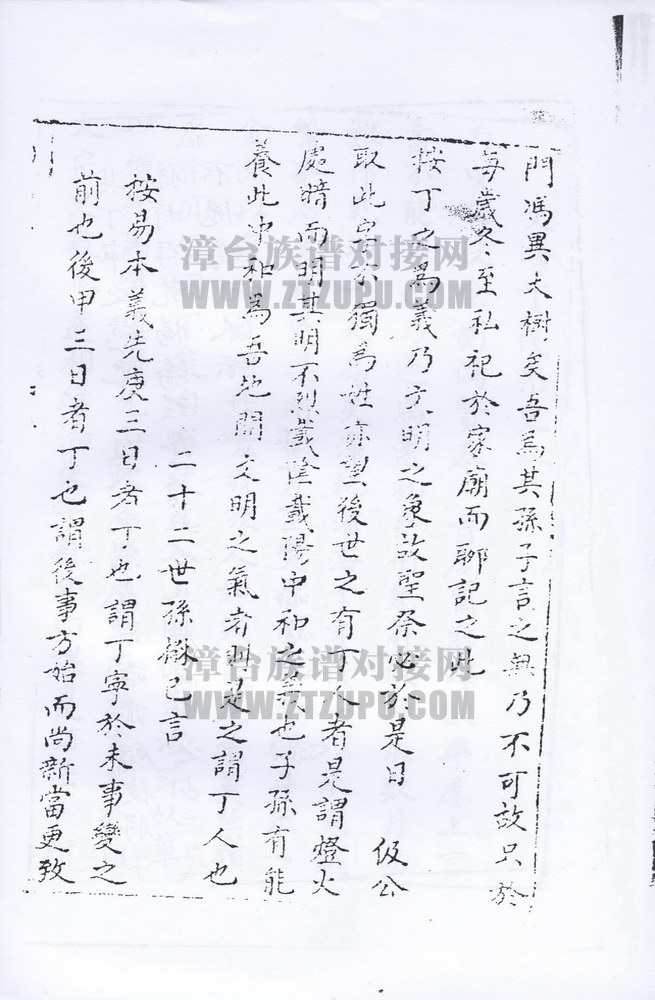 門馮異大樹矣吾為其孫子言之無乃不可故只於
每歲冬至私祀於家廟而聊記之此
按丁之為義乃文明之象故聖祭必於是日 伋公
取此字不獨為姓亦望後世之有丁人者是謂燈火
處暗而明其明不烈戴陰戴陽中和之義也子孫有能
養此中和為吾地開文明之氣者與是之謂丁人也
二十二世孫 已言
按易本義先庚三日者丁也謂丁寧於未事變之
前也後甲三日者丁也謂後事方始而尚新當更致
漳台族谱对接网
WWW.ZTZUPU.COM
漳台族谱对接网
WWW.ZTZUPU.COM